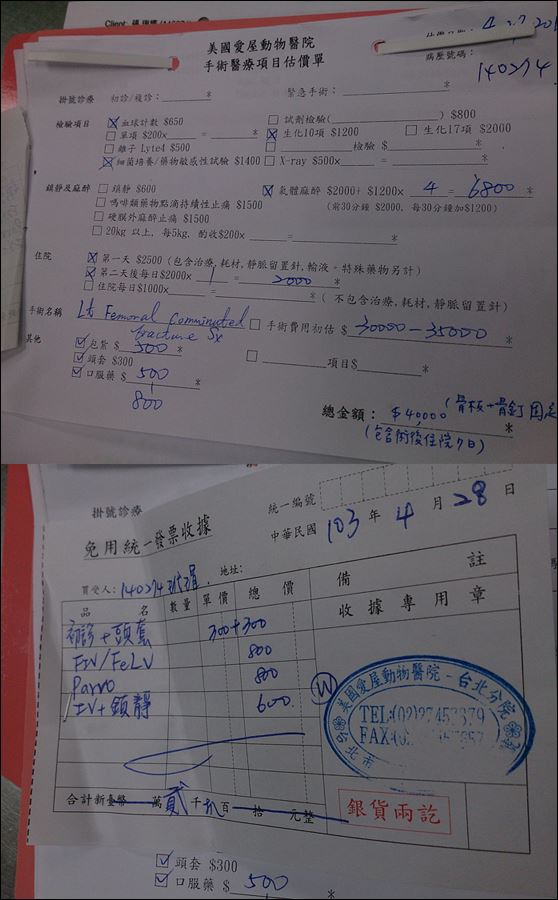 Client:
美國愛屋動物醫院
手術醫療項目估價單
病歷號碼：
140274
掛號診療 初診/複診：________* 緊急手術：________*
檢驗項目 ☒血球計數 $650 □試劑檢驗(________) $800
□單項 $200x____=____* ☒生化10項 $1200 □生化17項 $2000
□離子 Lyte4 $500 □________檢驗 $________*
☒細菌培養/藥物敏感性試驗 $1400 □X-ray $500x____=____*
鎮靜及麻醉 □鎮靜 $600 ☒氣體麻醉 $2000+ $1200x 4 = 6800 *
□嗎啡類藥物點滴持續性止痛 $1500 (前30分鐘 $2000, 每30分鐘加$1200)
□硬膜外麻醉止痛 $1500
□20kg 以上, 每5kg, 酌收$200x____=____*
住院 ☒第一天 $2500 (包含治療,耗材,靜脈留置針,輸液。特殊藥物另計)
☒第二天後每日$2000x 1 = 2000 *
□住院每日$1000x____=____* (不包含治療,耗材,靜脈留置針)
手術名稱 Lt Femoral comminuted fracture Sx □手術費用初估 $ 30000-35000 *
其他 ☑包紮 $ 500 * □________項目$________*
☑頭套 $300
☑口服藥 $ 500 *
800
總金額： $40,000 (骨板+骨釘 固定
(包含術後住院7日) *
掛號診療
統一編號
免用統一發票收據
中華民國 103 年 4 月 28 日
買受人：140274 地址：
品名 數量 單價 總價 備註
初診+頭套 300+300 收據專用章
FIV/FeLV 800
Parvo 800
IV+鎮靜 600
美國愛屋動物醫院-台北分院
TEL:(02)27453379
合計新臺幣 萬 貳 千 捌 百 拾 元整
銀貨兩訖
☑頭套 $300
☑口服藥 $ 500